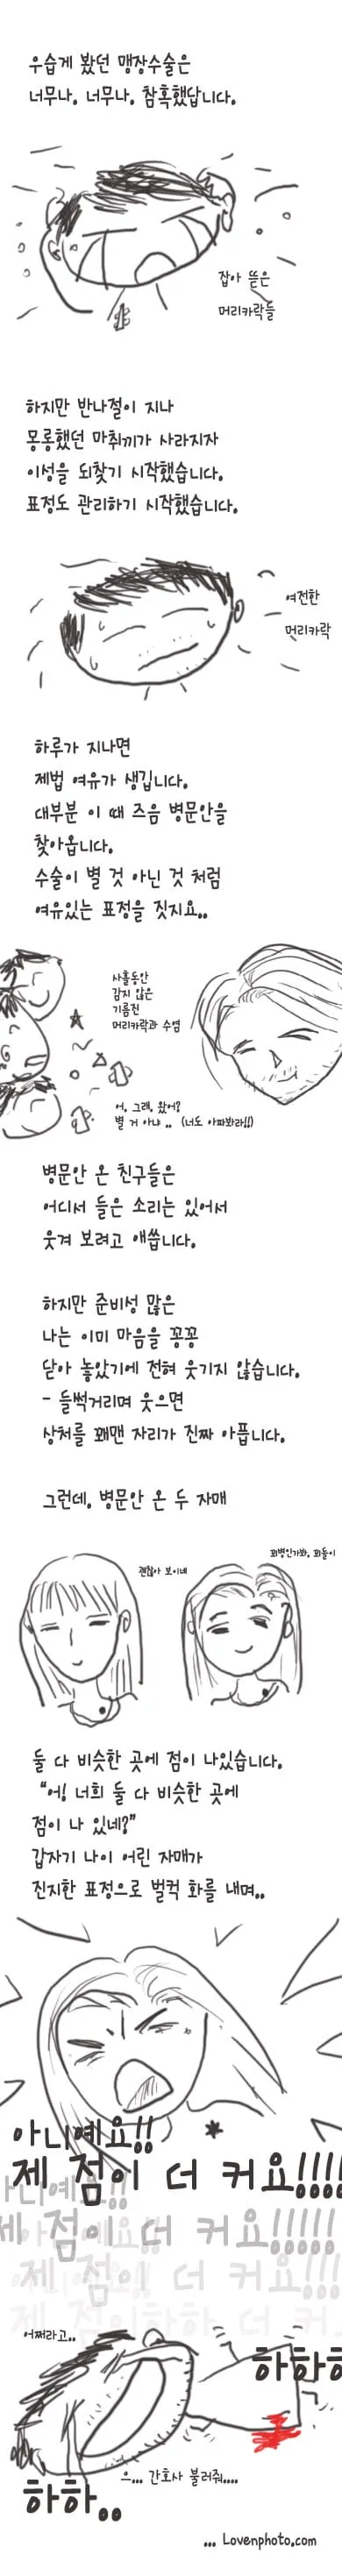 우습게 봤던 맹장수술은
너무나. 너무나. 참혹했답니다.
잡아 뜯은
머리카락들
하지만 반나절이 지나
몽롱했던 마취끼가 사라지자
이성을 되찾기 시작했습니다.
표정도 관리하기 시작했습니다.
여전한
머리카락
하루가 지나면
제법 여유가 생깁니다.
대부분 이 때 즈음 병문안을
찾아옵니다.
수술이 별 것 아닌 것 처럼
여유있는 표정을 짓지요..
사흘동안
감지 않은
기름진
머리카락과 수염
어, 그래. 왔어?
별 거 아냐 .. (너도 아파봐라!!)
병문안 온 친구들은
어디서 들은 소리는 있어서
웃겨 보려고 애씁니다.
하지만 준비성 많은
나는 이미 마음을 꽁꽁
닫아 놓았기에 전혀 웃기지 않습니다.
- 들썩거리며 웃으면
상처를 꿰맨 자리가 진짜 아픕니다.
그런데, 병문안 온 두 자매
괜찮아 보이네
꾀병인가봐, 꾀돌이
둘 다 비슷한 곳에 점이 나있습니다.
"어! 너희 둘 다 비슷한 곳에
점이 나 있네?"
갑자기 나이 어린 자매가
진지한 표정으로 벌컥 화를 내며..
아니예요!!
제 점이 더 커요!!!!
아니예요!!
제 점이 더 커요!!!!!
제 점이 더 커요!!!
제 점이 더 커
어쩌라고..
하하하
하하..
으... 간호사 불러줘....
... Lovenphoto.com